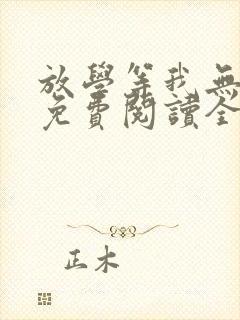 放學等我無
免費閱讀全
正木